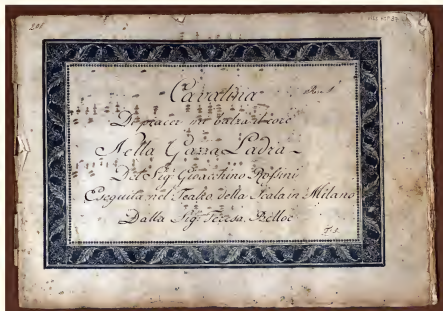 208
Cavatina
Di piacer mi balza il core
Nella Gazza Ladra
Del Sigr Gioacchino Rossini
Eseguita nel Teatro della Scala in Milano
Dalla Sigr Teresa Belloc